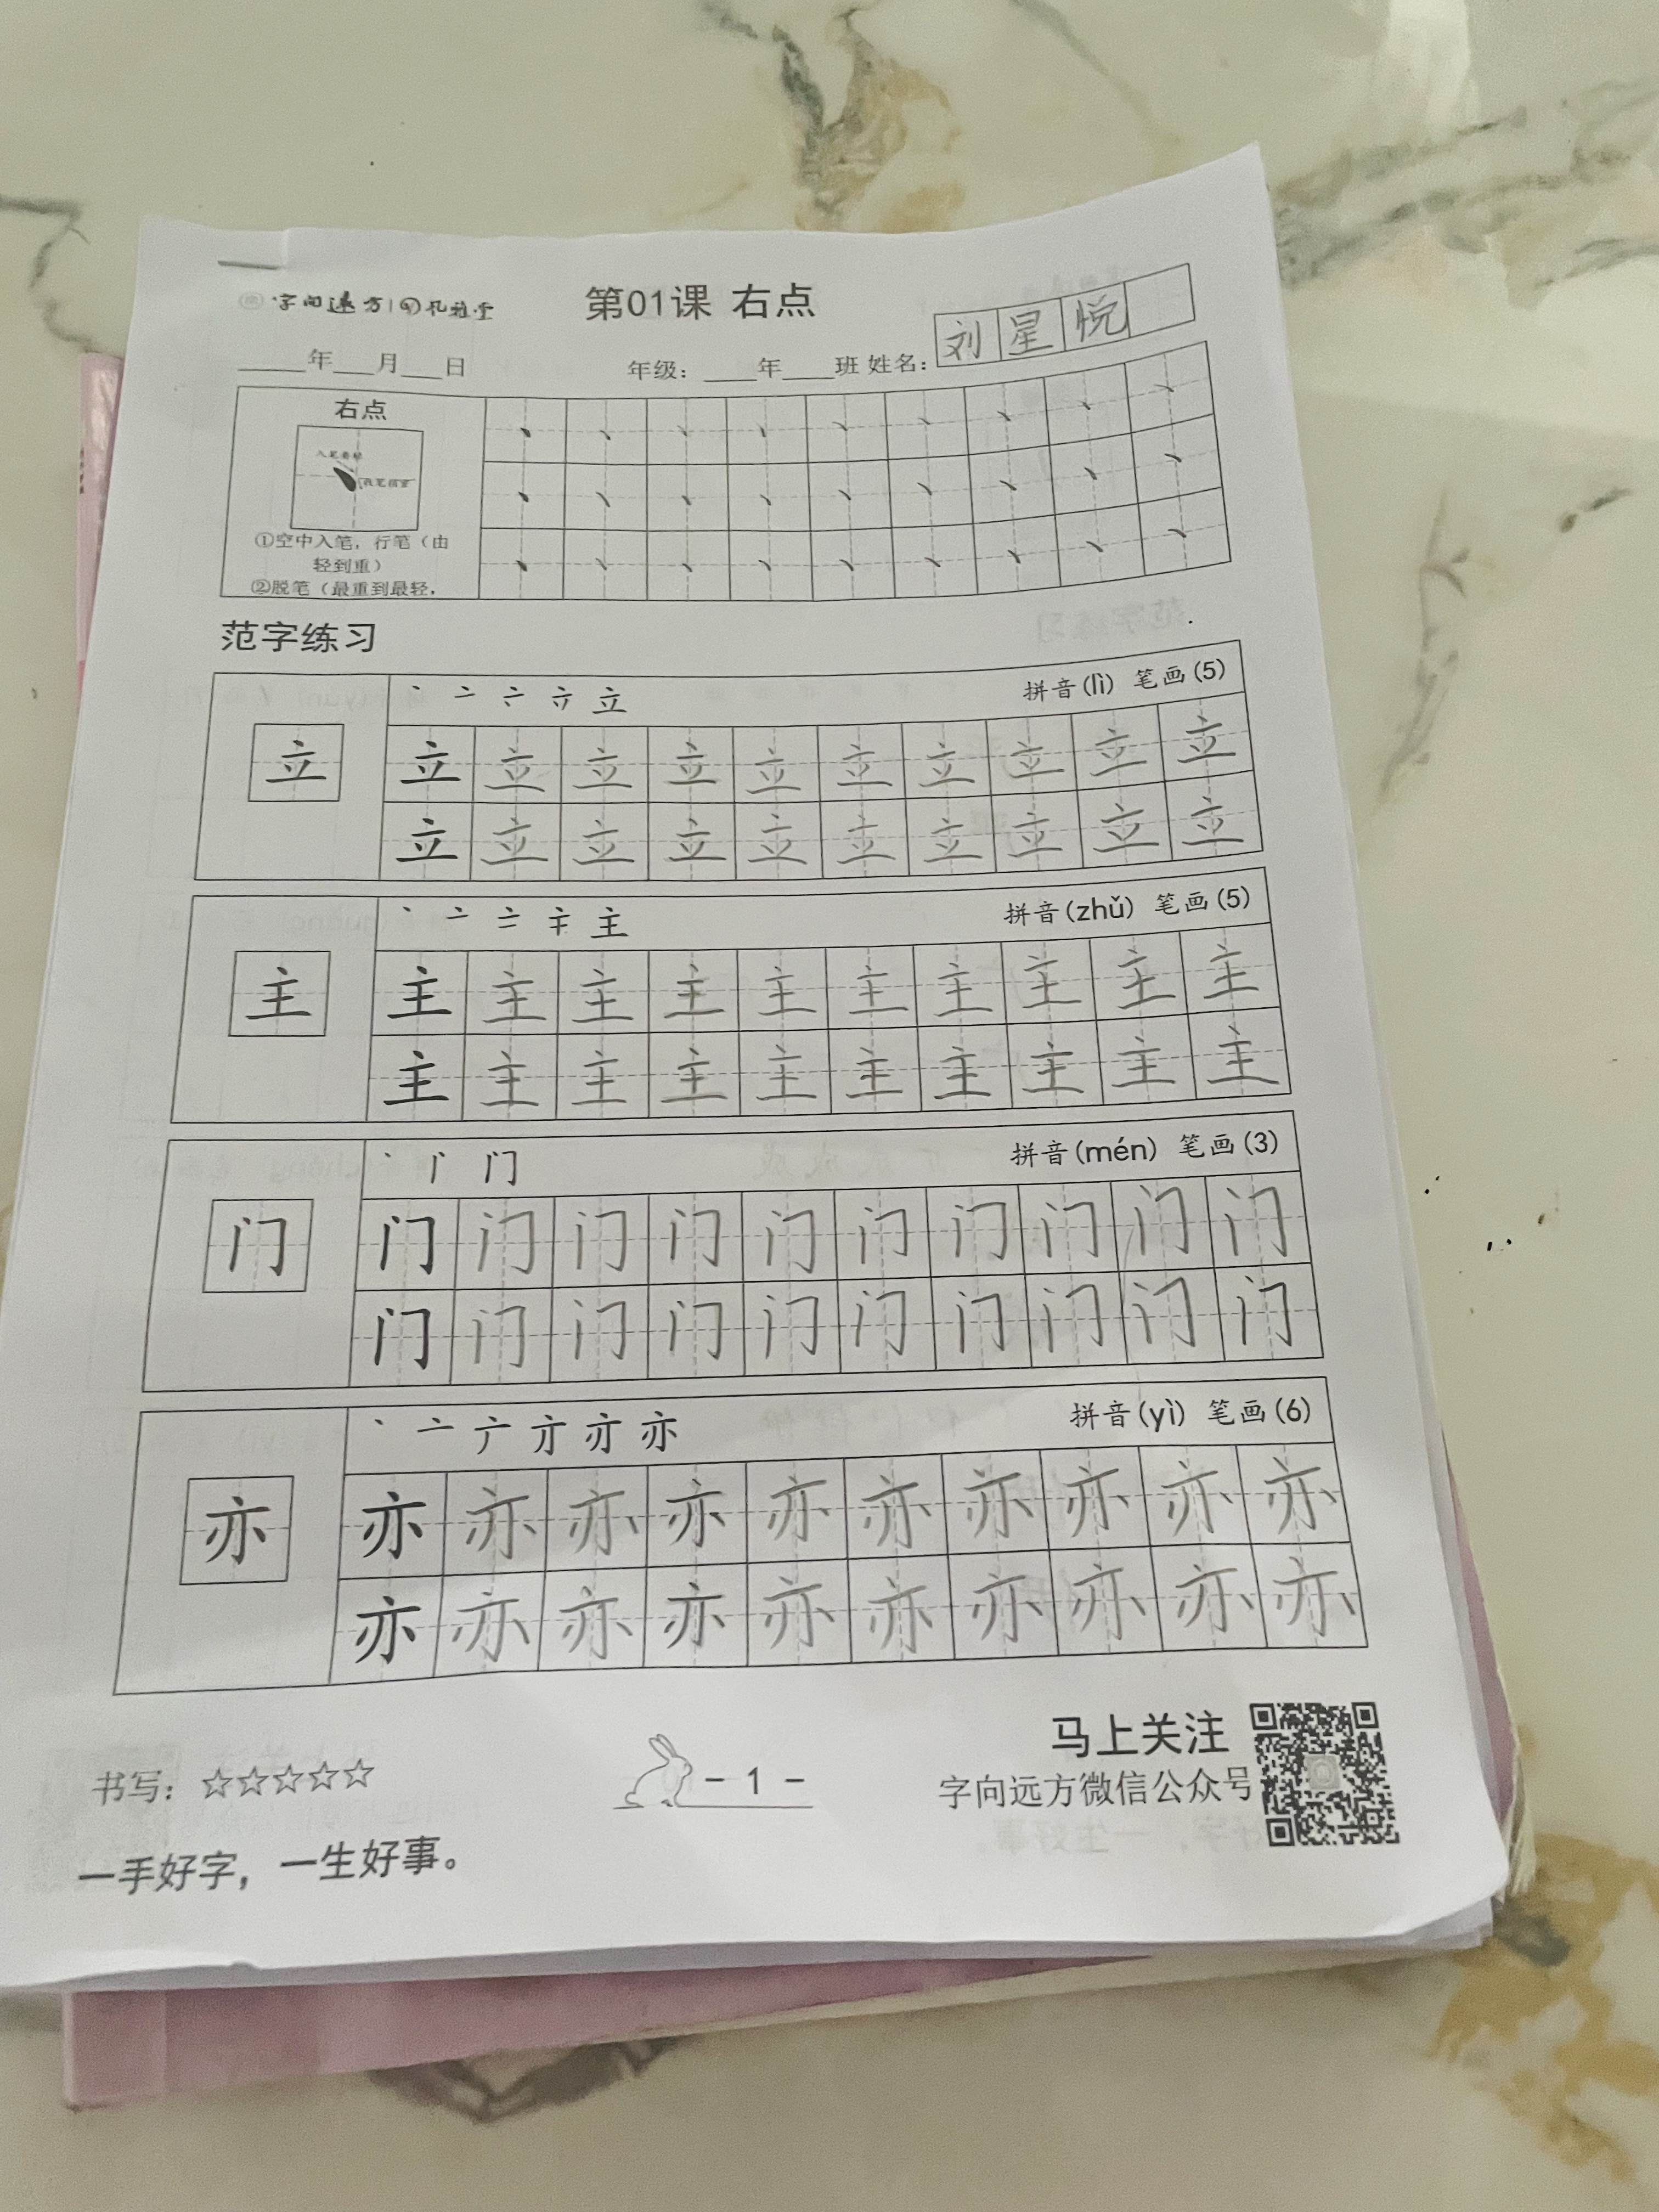 字向远方
第01课 右点
刘星悦
____年___月___日 年级：____年____班 姓名：
右点
①空中入笔，行笔（由
轻到重）
②脱笔（最重到最轻，
范字练习
拼音(lì) 笔画(5)
立 立 立 立 立 立 立 立 立 立 立
立 立 立 立 立 立 立 立 立 立
拼音(zhǔ) 笔画(5)
主 主 主 主 主 主 主 主 主 主 主
主 主 主 主 主 主 主 主 主 主
拼音(mén) 笔画(3)
门 门 门 门 门 门 门 门 门 门 门
门 门 门 门 门 门 门 门 门 门
拼音(yì) 笔画(6)
亦 亦 亦 亦 亦 亦 亦 亦 亦 亦 亦
亦 亦 亦 亦 亦 亦 亦 亦 亦 亦
书写：☆☆☆☆☆
- 1 -
马上关注
字向远方微信公众号
一手好字，一生好事。